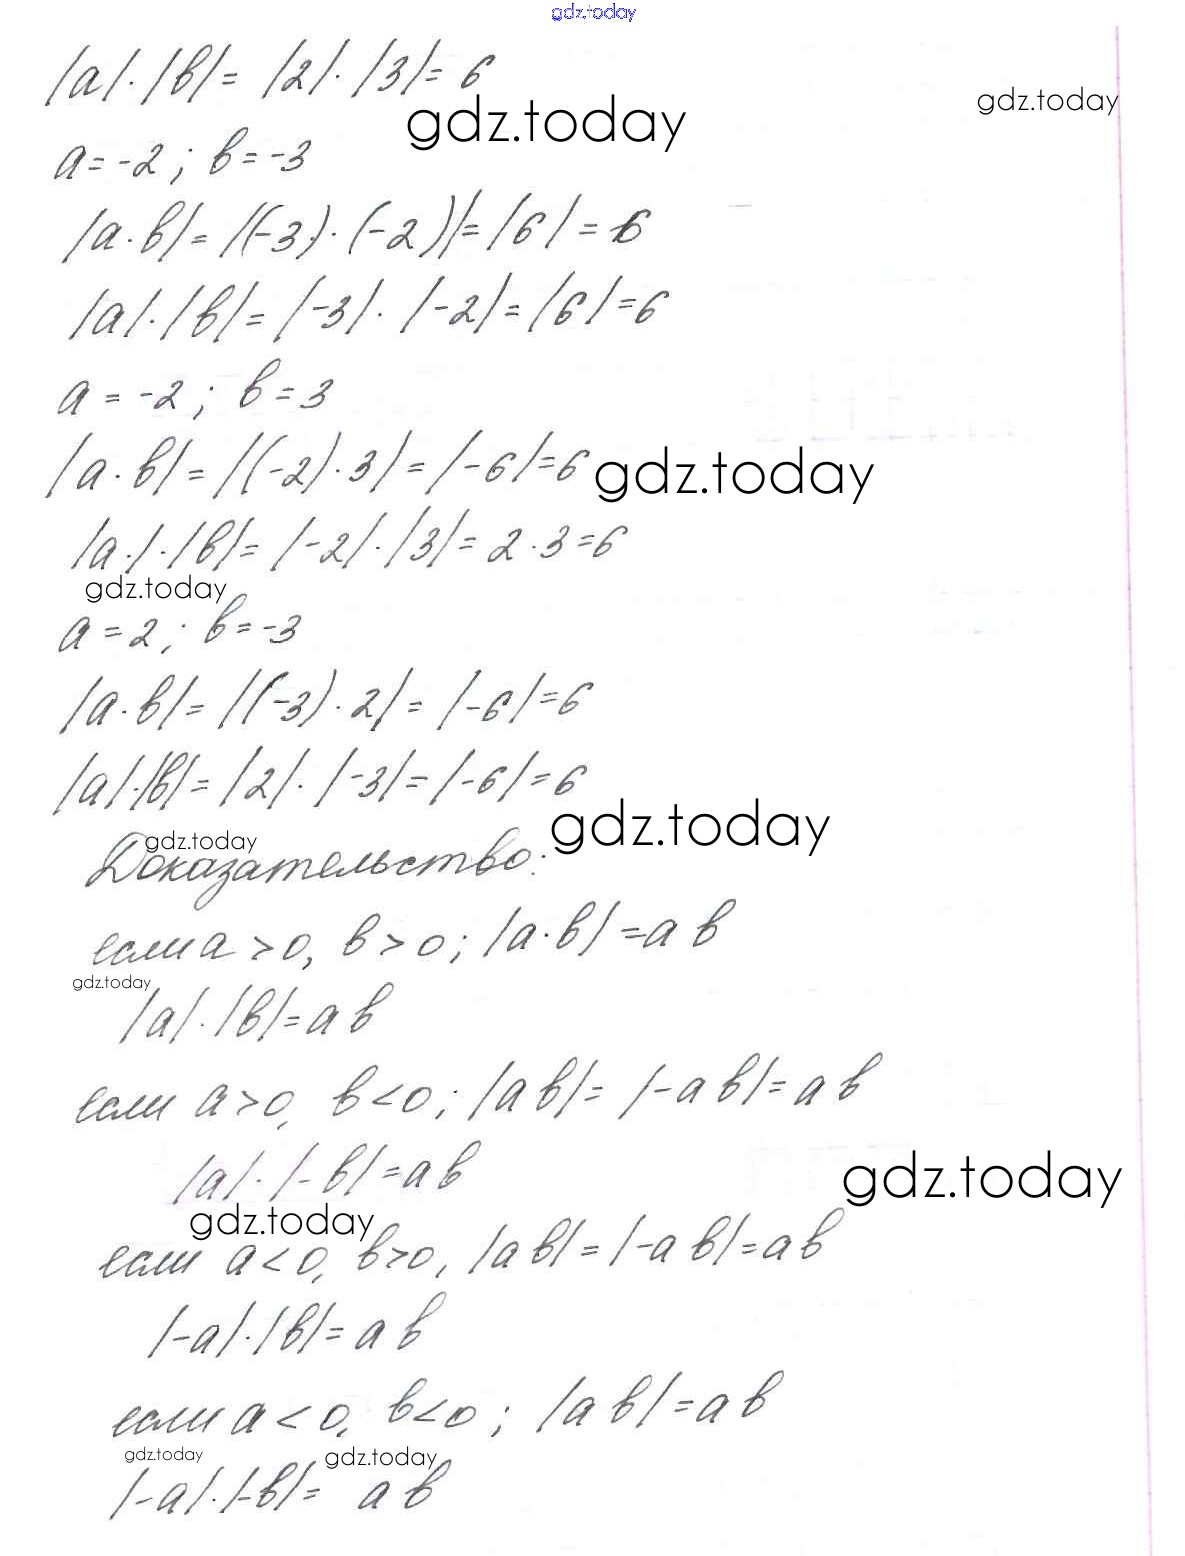 gdz.today
|a|·|b|= |2|·|3|= 6
gdz.today
gdz.today
a=-2; b=-3
|a·b|= |(-3)·(-2)|=|6|=6
|a|·|b|= |-3|·|-2|=|6|=6
a=-2; b=3
|a·b|= |(-2)·3|=|-6|=6
gdz.today
|a·|·|b|= |-2|·|3|= 2·3=6
gdz.today
a=2; b=-3
|a·b|= |(-3)·2|= |-6|=6
|a|·|b|= |2|·|-3|= |-6|=6
gdz.today
gdz.today
Доказательство:
если a>0, b>0; |a·b|=a b
gdz.today
|a|·|b|=a b
если a>0, b<0; |a b|= |-a b|=a b
|a|·|-b|=a b
gdz.today
gdz.today
если a<0, b>0, |a b|=|-a b|=a b
|-a|·|b|=a b
если a<0, b<0; |a b|=a b
gdz.today
gdz.today
|-a|·|-b|= a b